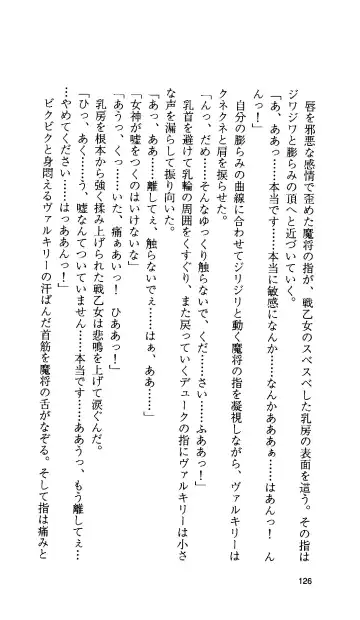 唇を邪悪な感情で歪めた魔将の指が、戦乙女のスベスベした乳房の表面を這う。その指は
ジワジワと膨らみの頂へと近づいていく。
「あ、ああっ……本当です……本当に敏感になんか……なんかあああぁ……はあんっ！　ん
んっ！」
自分の膨らみの曲線に合わせてジリジリと動く魔将の指を凝視しながら、ヴァルキリーは
クネクネと肩を捩らせた。
「んっ、だめ……そんなゆっくり触らないで、くだ……さい……ふああっ！」
乳首を避けて乳輪の周囲をくすぐり、また戻っていくデュークの指にヴァルキリーは小さ
な声を漏らして振り向いた。
「あっ、ああ……離してぇ、触らないでぇ……はぁ、ああ……」
「女神が嘘をつくのはいけないな」
「あうっ、くっ……いた、痛ぁあいっ！　ひああっ！」
乳房を根本から強く揉み上げられた戦乙女は悲鳴を上げて涙ぐんだ。
「ひっ、あく……う、嘘なんてついていません……本当です……ああうっ、もう離してぇ…
…やめてください……はっああんっ！」
ビクビクと身悶えるヴァルキリーの汗ばんだ首筋を魔将の舌がなぞる。そして指は痛みと
126